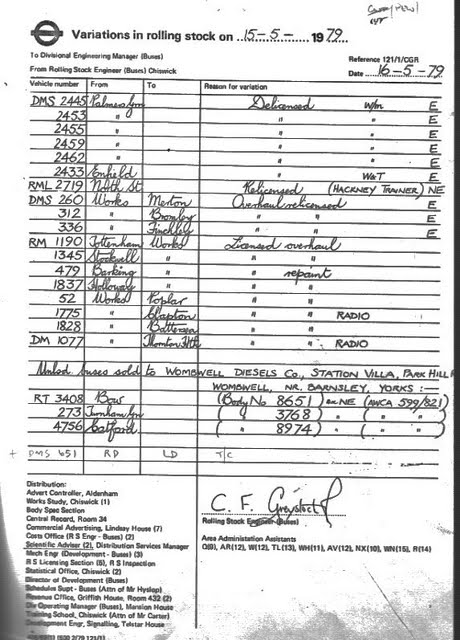 Variations in rolling stock on 15-5- 1979.
To Divisional Engineering Manager (Buses)
From Rolling Stock Engineer (Buses) Chiswick
Reference 121/1/CGR
Date 16-5-79
Vehicle number From To Reason for variation
DMS 2445 Palmers Gn Delicensed W/m E
2453 " " " E
2455 " " " E
2459 " " " E
2462 " " " E
2433 Enfield " W&T E
RML 2719 North St Relicensed (HACKNEY TRAINER) NE
DMS 260 Works Merton Overhaul relicensed E
312 " Bromley " " E
336 " Finchley " " E
RM 1190 Tottenham Works Licensed overhaul
1345 Stockwell " " "
479 Barking " " repaint
1837 Holloway " " "
52 Works Poplar " "
1775 " Clapton " " RADIO
1828 " Battersea " "
DM 1077 " Thornton Hth " " RADIO
Unlsd buses sold to WOMBWELL DIESELS Co., STATION VILLA, PARK HILL
WOMBWELL, NR. BARNSLEY, YORKS :—
RT 3408 Bow (Body No 8651) ex NE (AWCA 599/821)
273 Turnham Gn ( " 3768) " ( " " )
4756 Catford ( " 8974) " ( " " )
+ DMS 651 RD LD T/C
Distribution:
Advert Controller, Aldenham
Works Study, Chiswick (1)
Body Spec Section
Central Record, Room 34
Commercial Advertising, Lindsay House (7)
Costs (R S Engr - Buses) (2)
Scientific Adviser (2), Distribution Services Manager
Mech Engr (Development - Buses) (3)
R S Licensing Section (5), R S Inspection
Statistical Office, Chiswick (2)
Director of Development (Buses)
Schedules Supt - Buses (Attn of Mr Hyslop)
Revenue Office, Griffith House, Room 432 (2)
Div Operating Manager (Buses), Mansion House
Training School, Chiswick (Attn of Mr Carter)
Development Engr, Signalling, Telstar House
C. F. Greystock
Rolling Stock Engineer (Buses)
Area Administation Assistants
Q(B), AR(12), W(12), TL(13), WH(11), AV(12), NX(10), WN(15), R(14)